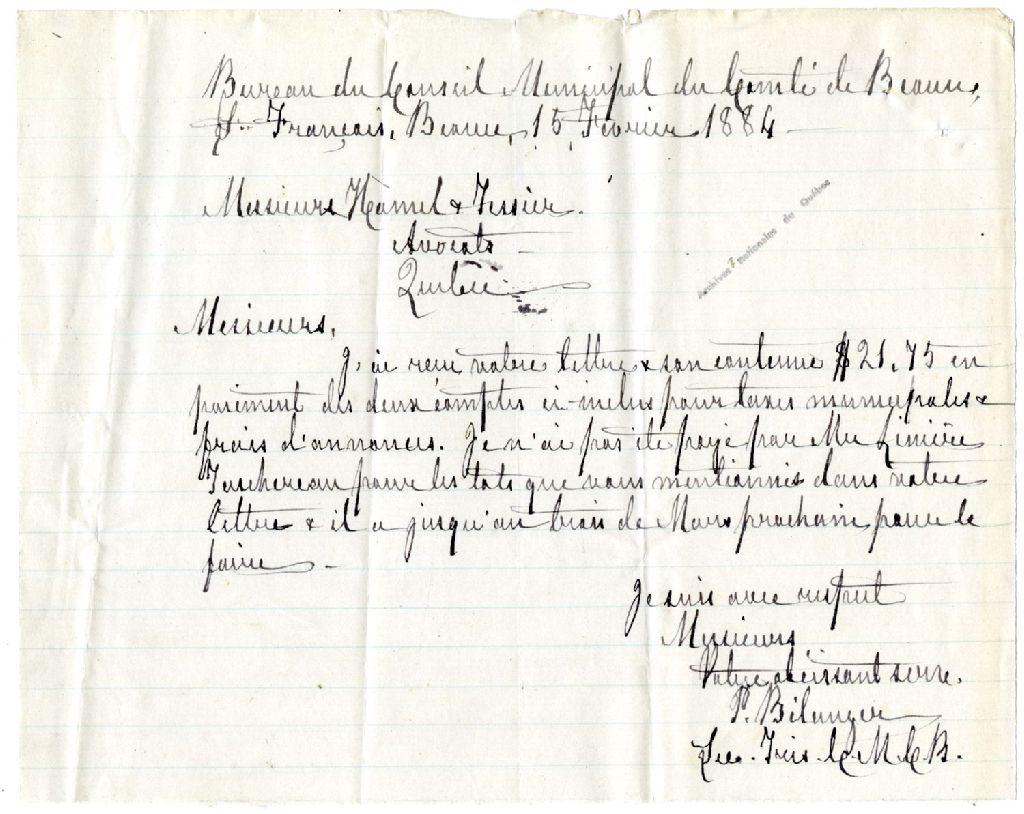 Bureau du Conseil Municipal du Comté de Beauce,
St François, Beauce, 15 Février 1884
Messieurs Hamel & Tessier.
Avocats
Québec
Archives nationales du Québec
Messieurs,
J'ai reçu votre lettre & son contenu $21.75 en
paiement des deux comptes ci-inclus pour taxes municipales &
frais d'annonces. Je n'ai pas été payé par Mr Linière
Taschereau pour les lots que vous mentionnés dans votre
lettre & il a jusqu'au trois de Mars prochain pour le
faire
Je suis avec respect
Messieurs
Votre obéissant serv.
P. Bélanger
Sec. Trés. C. M. C. B.